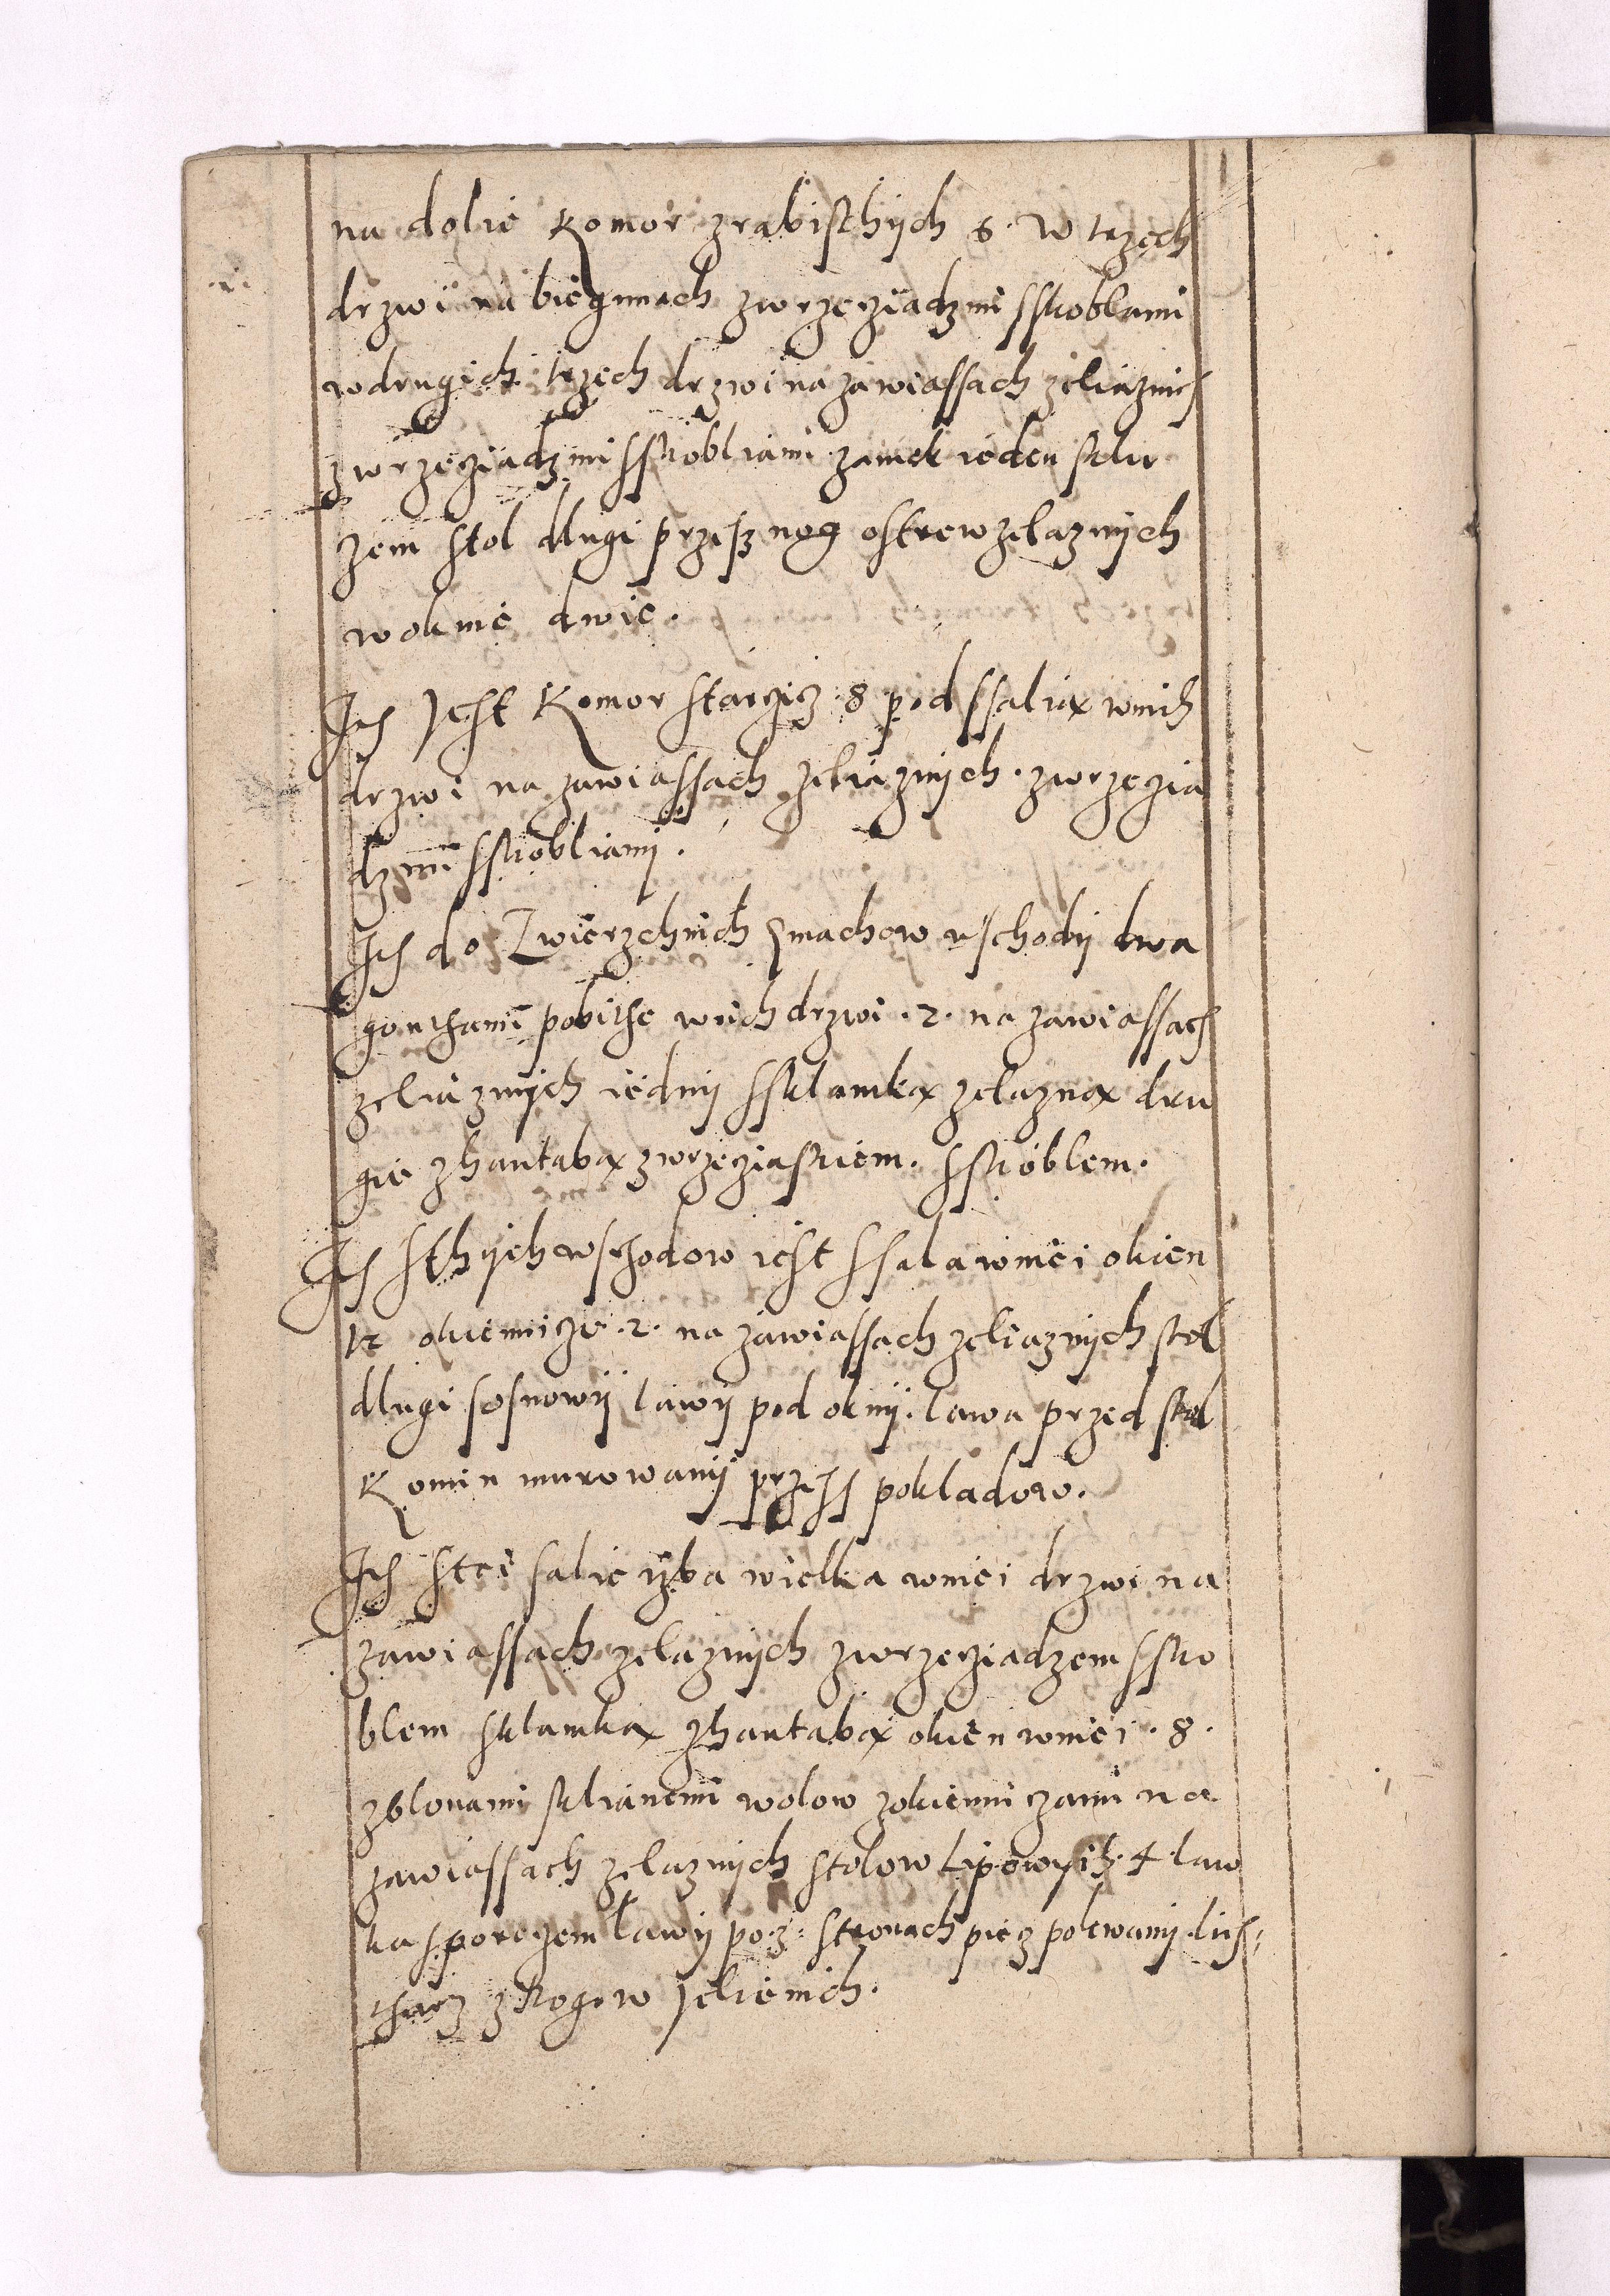 na dolie Komor zrabisthych 6. W trzech
drzwi na biegunach zwrzecziadzmi sskoblami
wdrugich trzech drzwi na zawiassach zeliaznich
zwrzecziadzmi sskobliami zamek ieden sklu
zem stol dlugi przesz nog ostrew zelaznych
woknie dwie.
Ites Jest Komor starzicz 8 pod ssaliax wnich
drzwi na zawiassach zeliaznych. zwrzeczia
dzmi sskobliami.
Ites do Zwierzchnich gmachow wschody dwa
gonthami pobithe wnich drzwi .2. na zawiassach
zeliaznych iedny ssklamkax zelaznax dru
gie zhantabax zwrzecziaskiem. sskoblem.
Ites sthych wschodow iest ssala wniei okien
12 okiennicze .2. na zawiassach zeliaznych stol
dlugi sosnowy lawy pod okny. lawa przed stol
Komin murowany przess pokladow.
Ites stei salie izba wielka wniei drzwi na
zawiassach zelaznych zwrzecziadzem ssko
blem sklamkax zhantabax okien wniei .8.
zblonami sklianemi wolow zokienniczami na
zawiassach zelaznych stolow Lipowych 4 law
ka sporeczem lawy po 3 stronach piecz polewany lis
tharz z Rogow Jelienich.